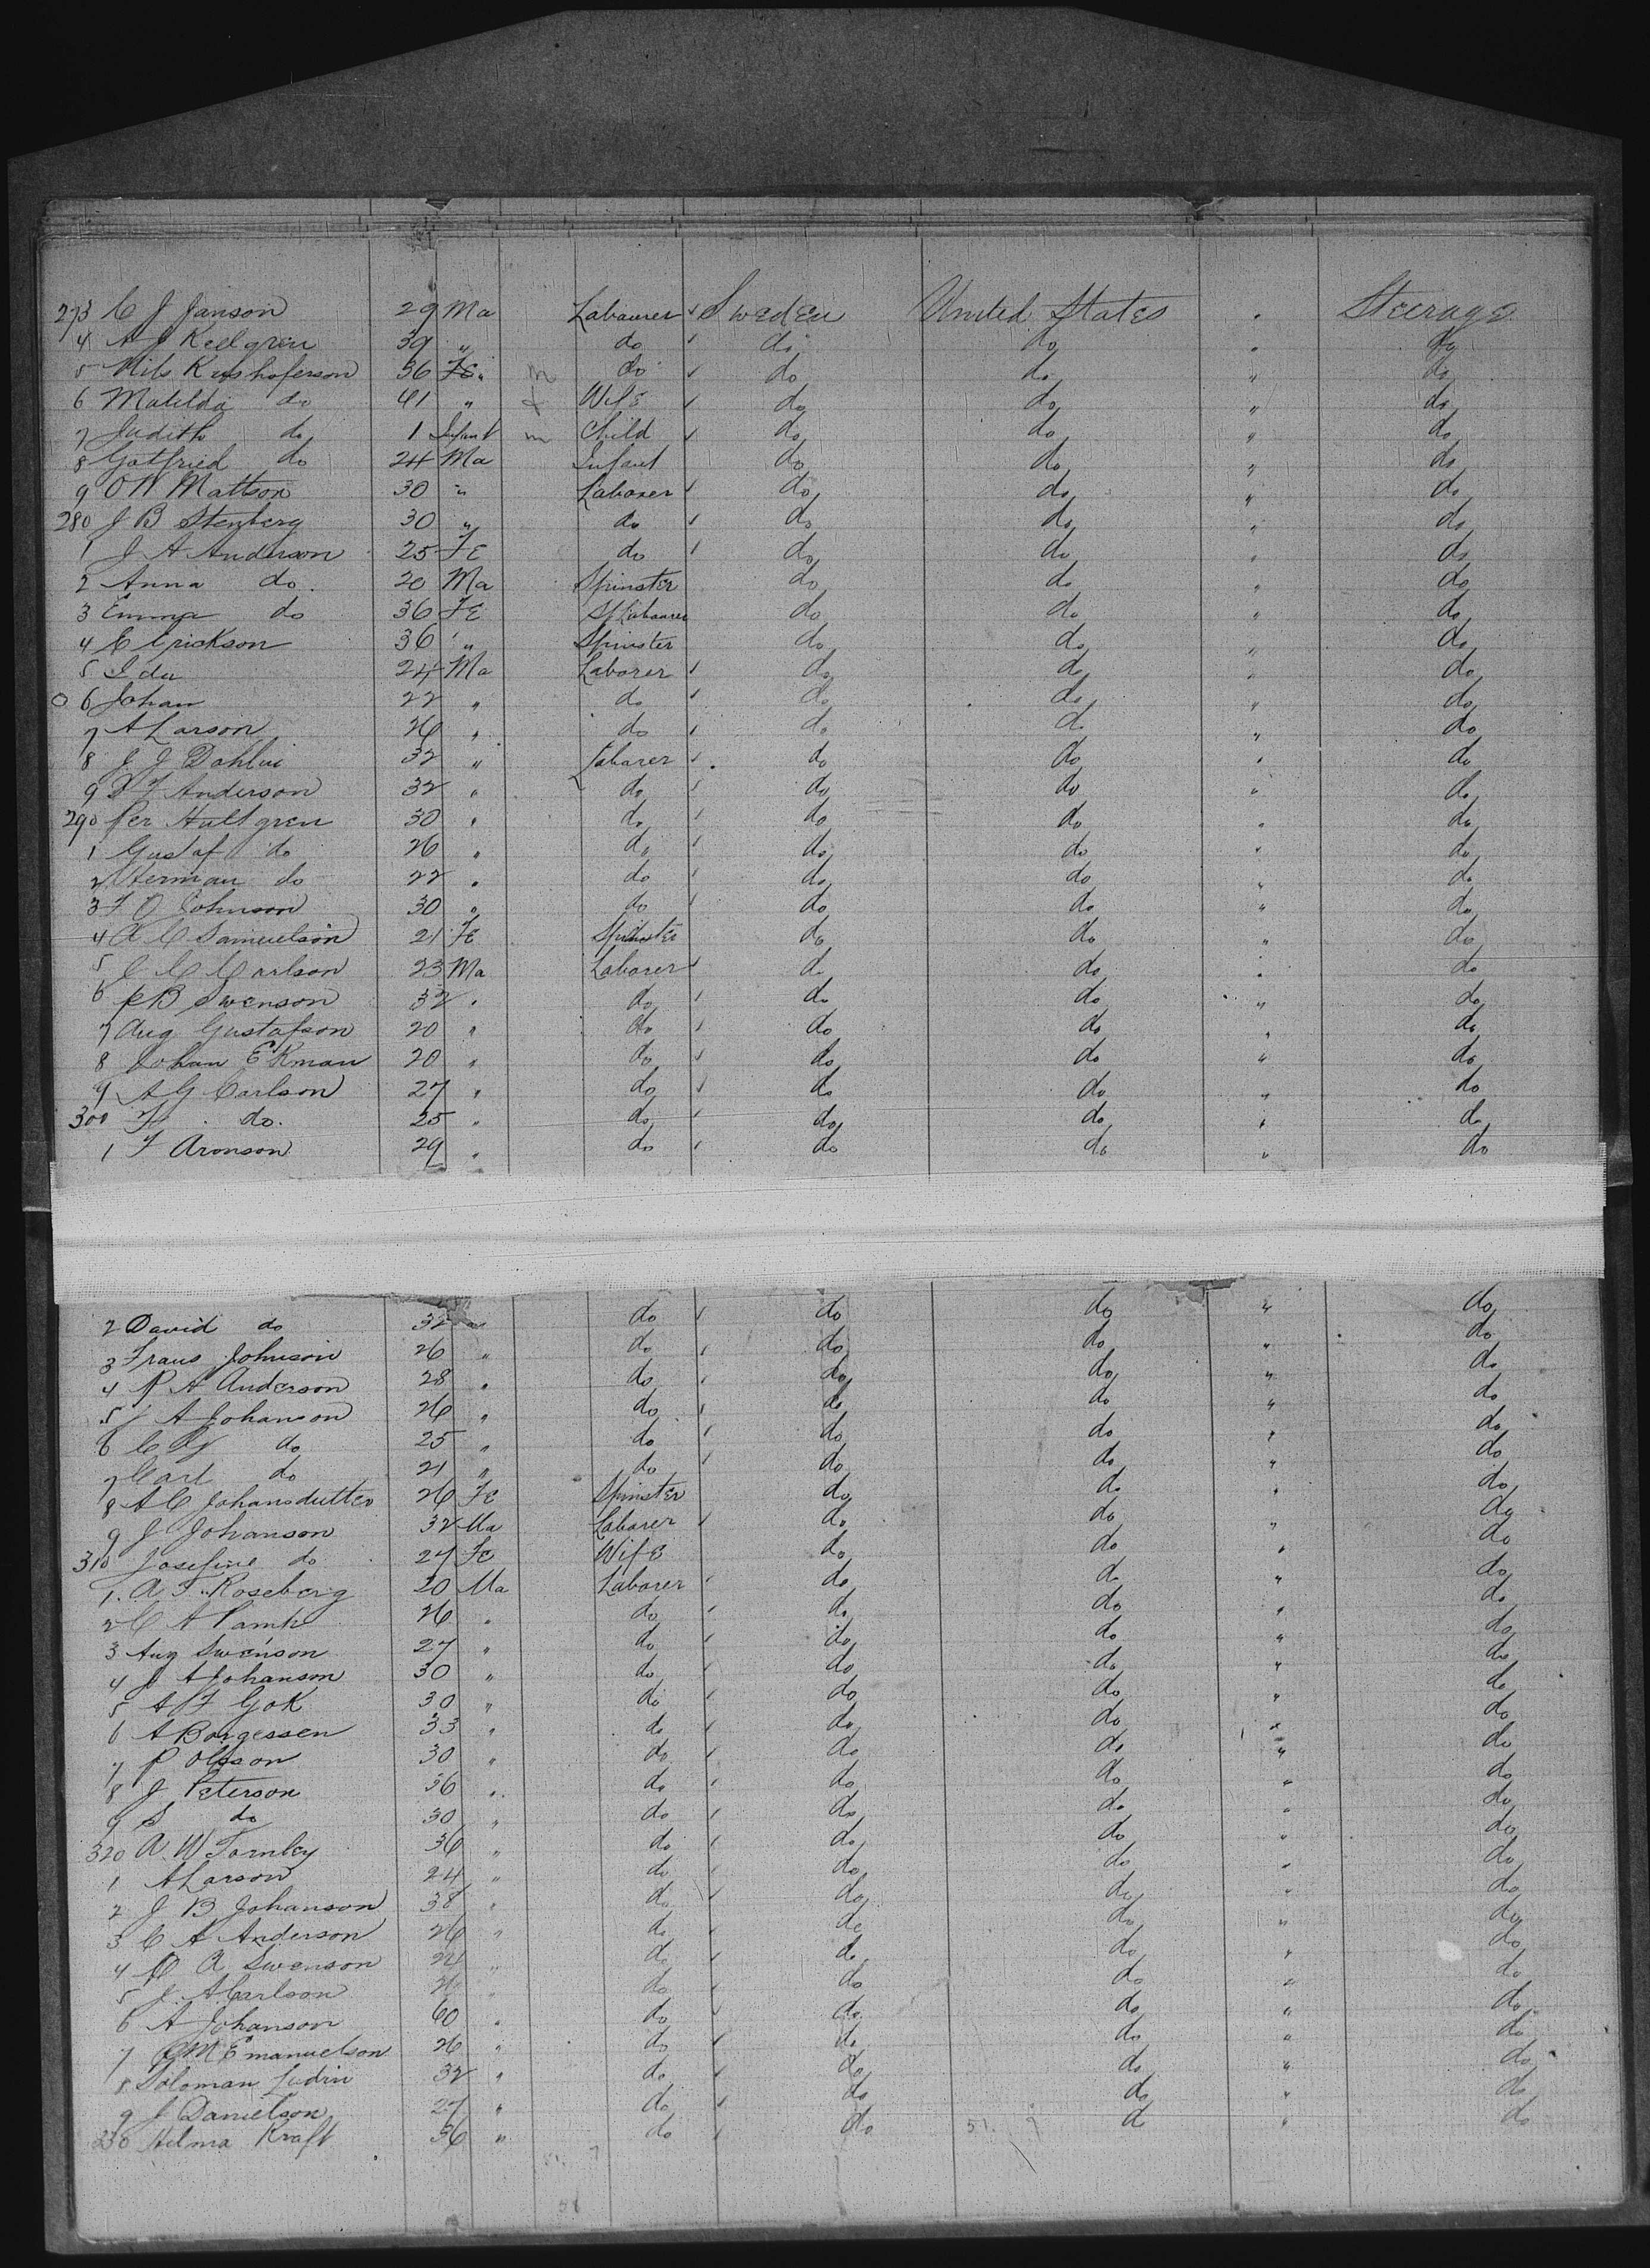 273 C J Janson 29 Ma Labaurer Sweden United States " Steerage
4 A J Keelgren 39 " do do do " do
5 Nils Kushoferson 36 Fe " m do do do " do
6 Matilda do 41 " f Wife do do " do
7 Judith do 1 Infant m Child do do " do
8 Gotfried do 24 Ma Infant do do " do
9 O N Mattson 30 " Laborer do do " do
280 J B Stenberg 30 " do do do " do
1 J A Anderson 25 Fe do do do " do
2 Anna do 20 Ma Spinster do do " do
3 Emma do 36 Fe Sp Labaurer do do " do
4 E Erickson 36 " Spinster do do " do
5 Ida 24 Ma Laborer do do " do
6 Johan 22 " do do do " do
7 A Larson 26 " do do do " do
8 J J Dahlin 32 " Labarer do do " do
9 Anderson 32 " do do do " do
290 Per Hultgren 30 " do do do " do
1 Gustaf do 26 " do do do " do
2 Herman do 22 " do do do " do
3 F O Johnson 30 " do do do " do
4 A C Samuelson 21 Fe Spinster do do " do
5 C C Carlson 23 Ma Laborer do do " do
6 P B Swenson 32 " do do do " do
7 Aug Gustafson 20 " do do do " do
8 Johan Ekman 20 " do do do " do
9 A G Carlson 27 " do do do " do
300 F do 25 " do do do " do
1 F Aronson 29 " do do do " do
2 David do 32 " do do do " do
3 Frans Johnson 26 " do do do " do
4 P A Anderson 28 " do do do " do
5 J A Johanson 26 " do do do " do
6 C do 25 " do do do " do
7 Carl do 21 " do do do " do
8 A C Johansdutter 26 Fe Spinster do do " do
9 J Johanson 32 Ma Laborer do do " do
310 Josefine do 27 Fe Wife do do " do
1 A F Roseberg 20 Ma Laborer do do " do
2 C A 26 " do do do " do
3 Aug Swenson 27 " do do do " do
4 J A Johanson 30 " do do do " do
5 A F Gok 30 " do do do " do
6 A Borgessen 33 " do do do " do
7 P Olsson 30 " do do do " do
8 J Peterson 36 " do do do " do
9 S do 30 " do do do " do
320 A W Tornley 36 " do do do " do
1 A Larson 24 " do do do " do
2 J B Johanson 38 " do do do " do
3 C A Anderson 26 " do do do " do
4 A Swenson 24 " do do do " do
5 J A Carlson 26 " do do do " do
6 A Johanson 60 " do do do " do
7 M Emanuelson 26 " do do do " do
8 Soloman Ludin 32 " do do do " do
9 J Danielson 27 " do do do " do
330 Hilma Kraft 36 " do do do " do